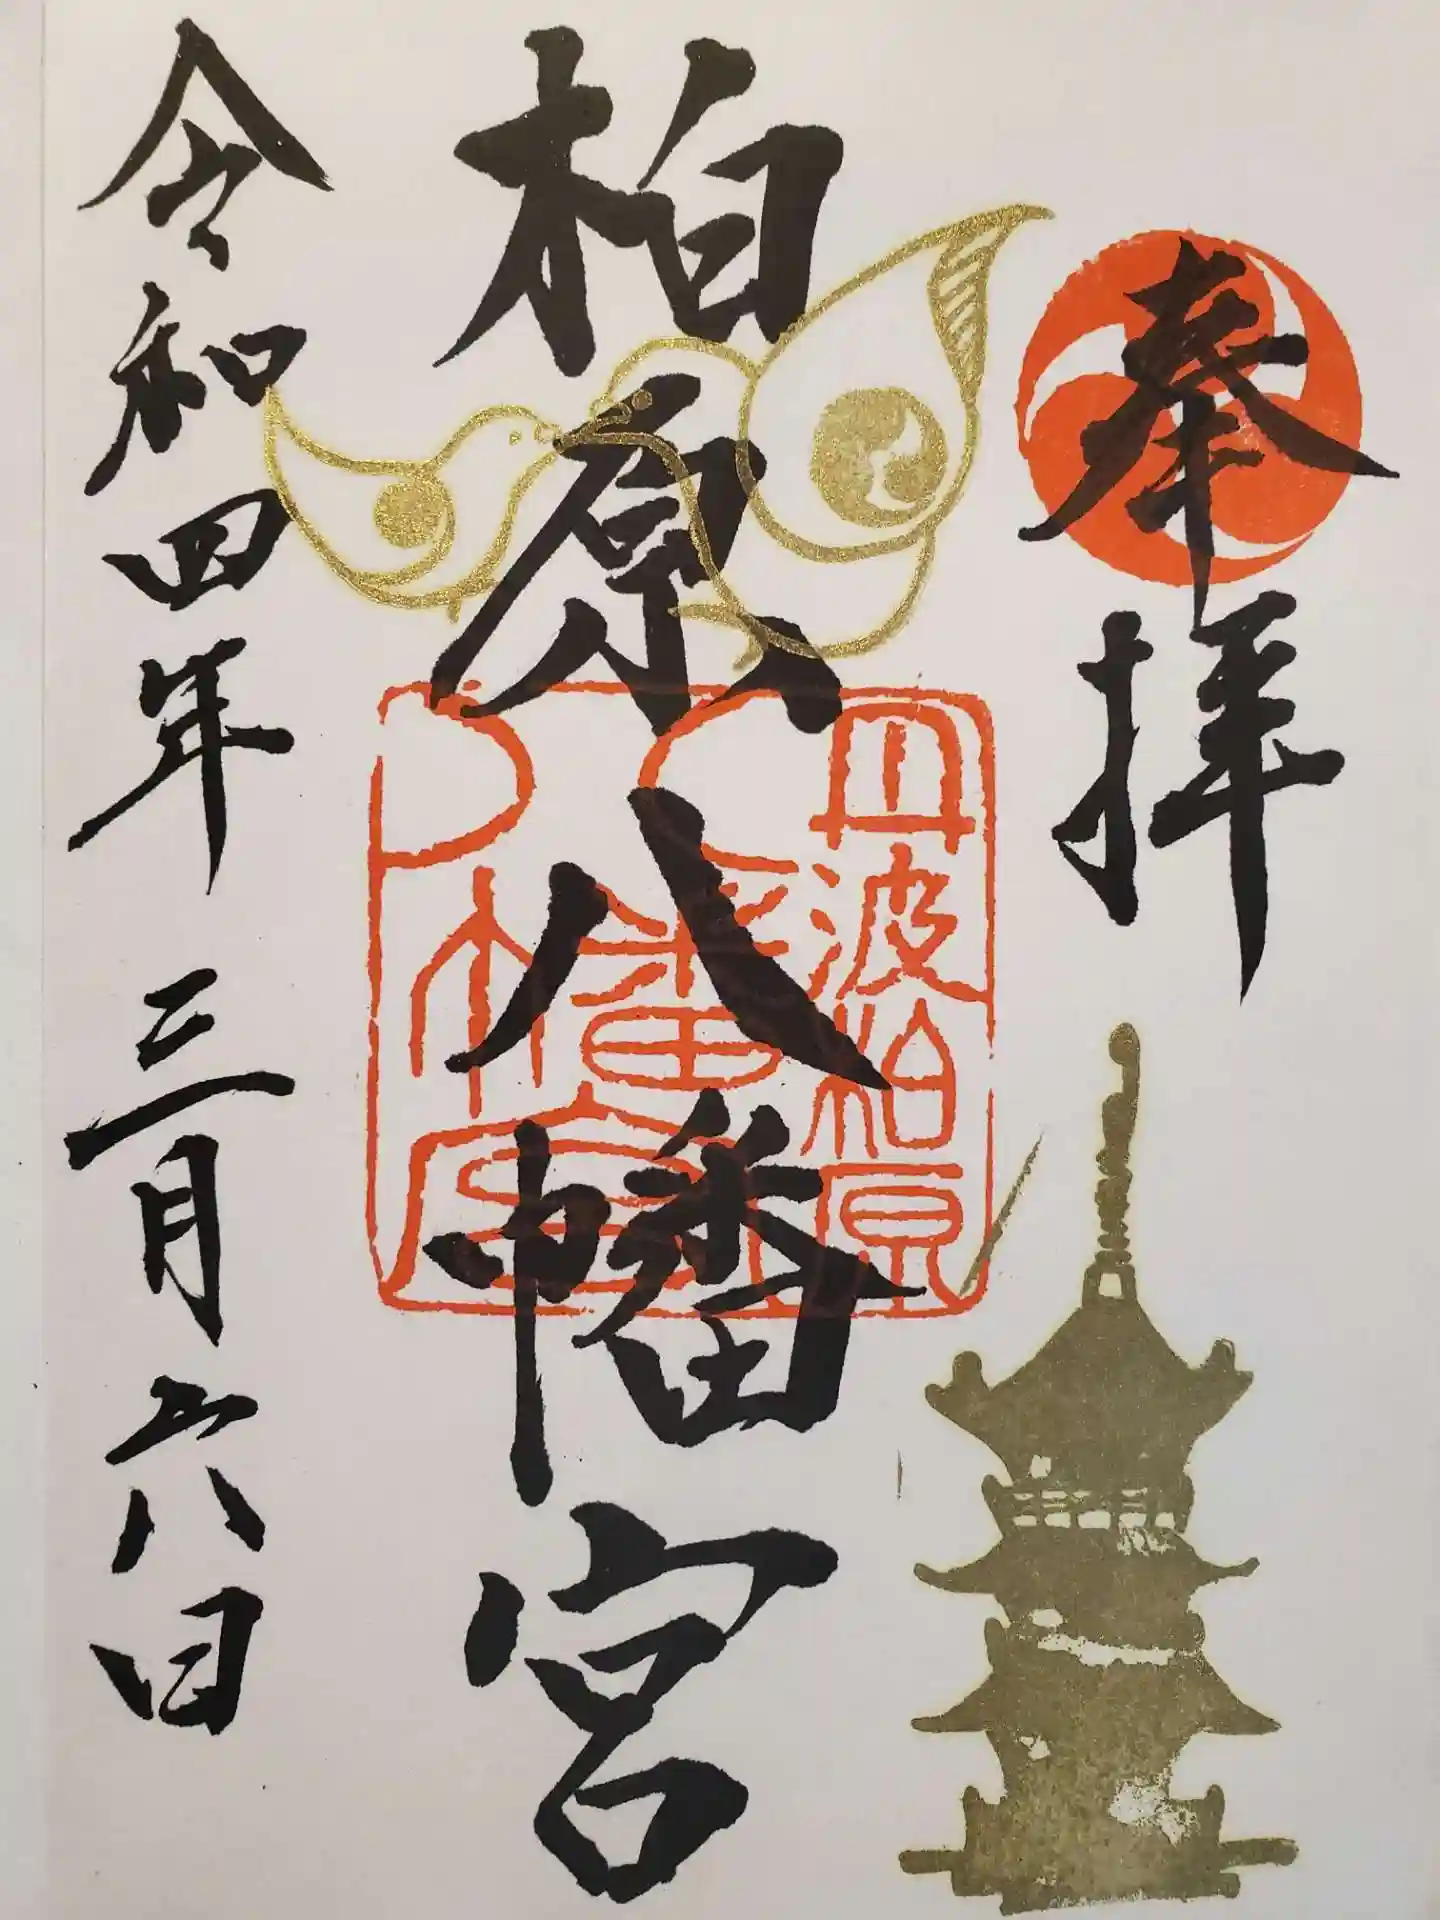 奉拝
丹波柏原
八幡宮
柏原八幡宮
令和四年三月六日